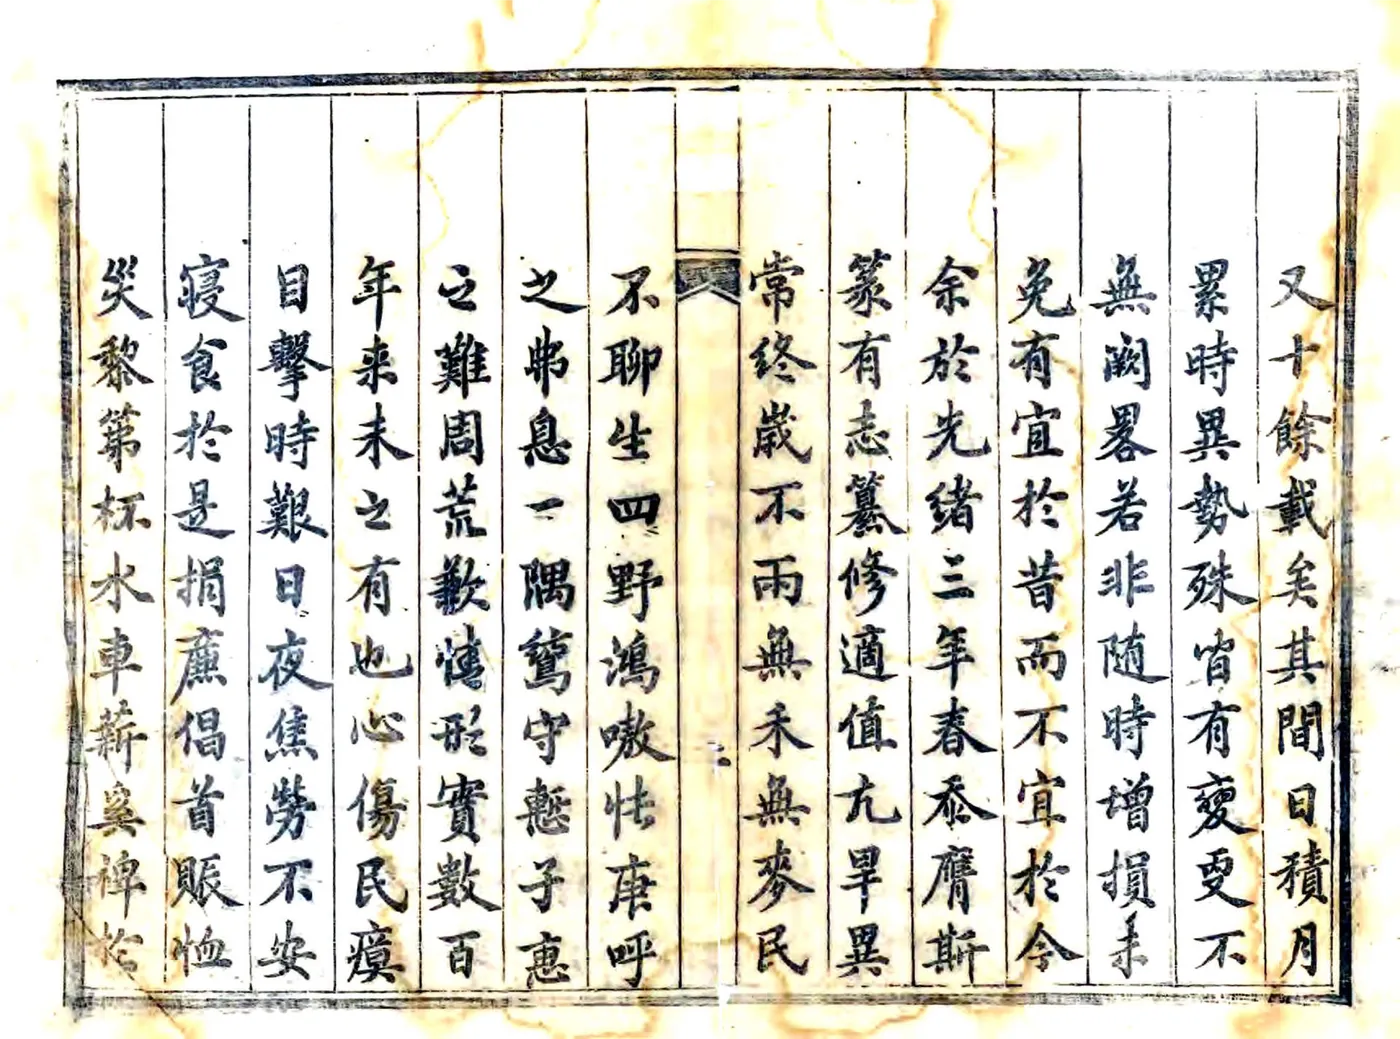 又十餘載矣其間日積月
累時異勢殊皆有變更不
無闕畧若非随時增損未
免有宜於昔而不宜於今
余於光緒三年春忝膺斯
篆有志纂修適值亢旱異
常終歲不雨無禾無麥民
不聊生四野鴻嗷怯庚呼
之弗息一隅鴛守慙子惠
之難周荒歉情形實數百
年来未之有也心傷民瘼
目擊時艱日夜焦勞不安
寝食於是捐廉倡首賑恤
災黎第杯水車薪奚裨於